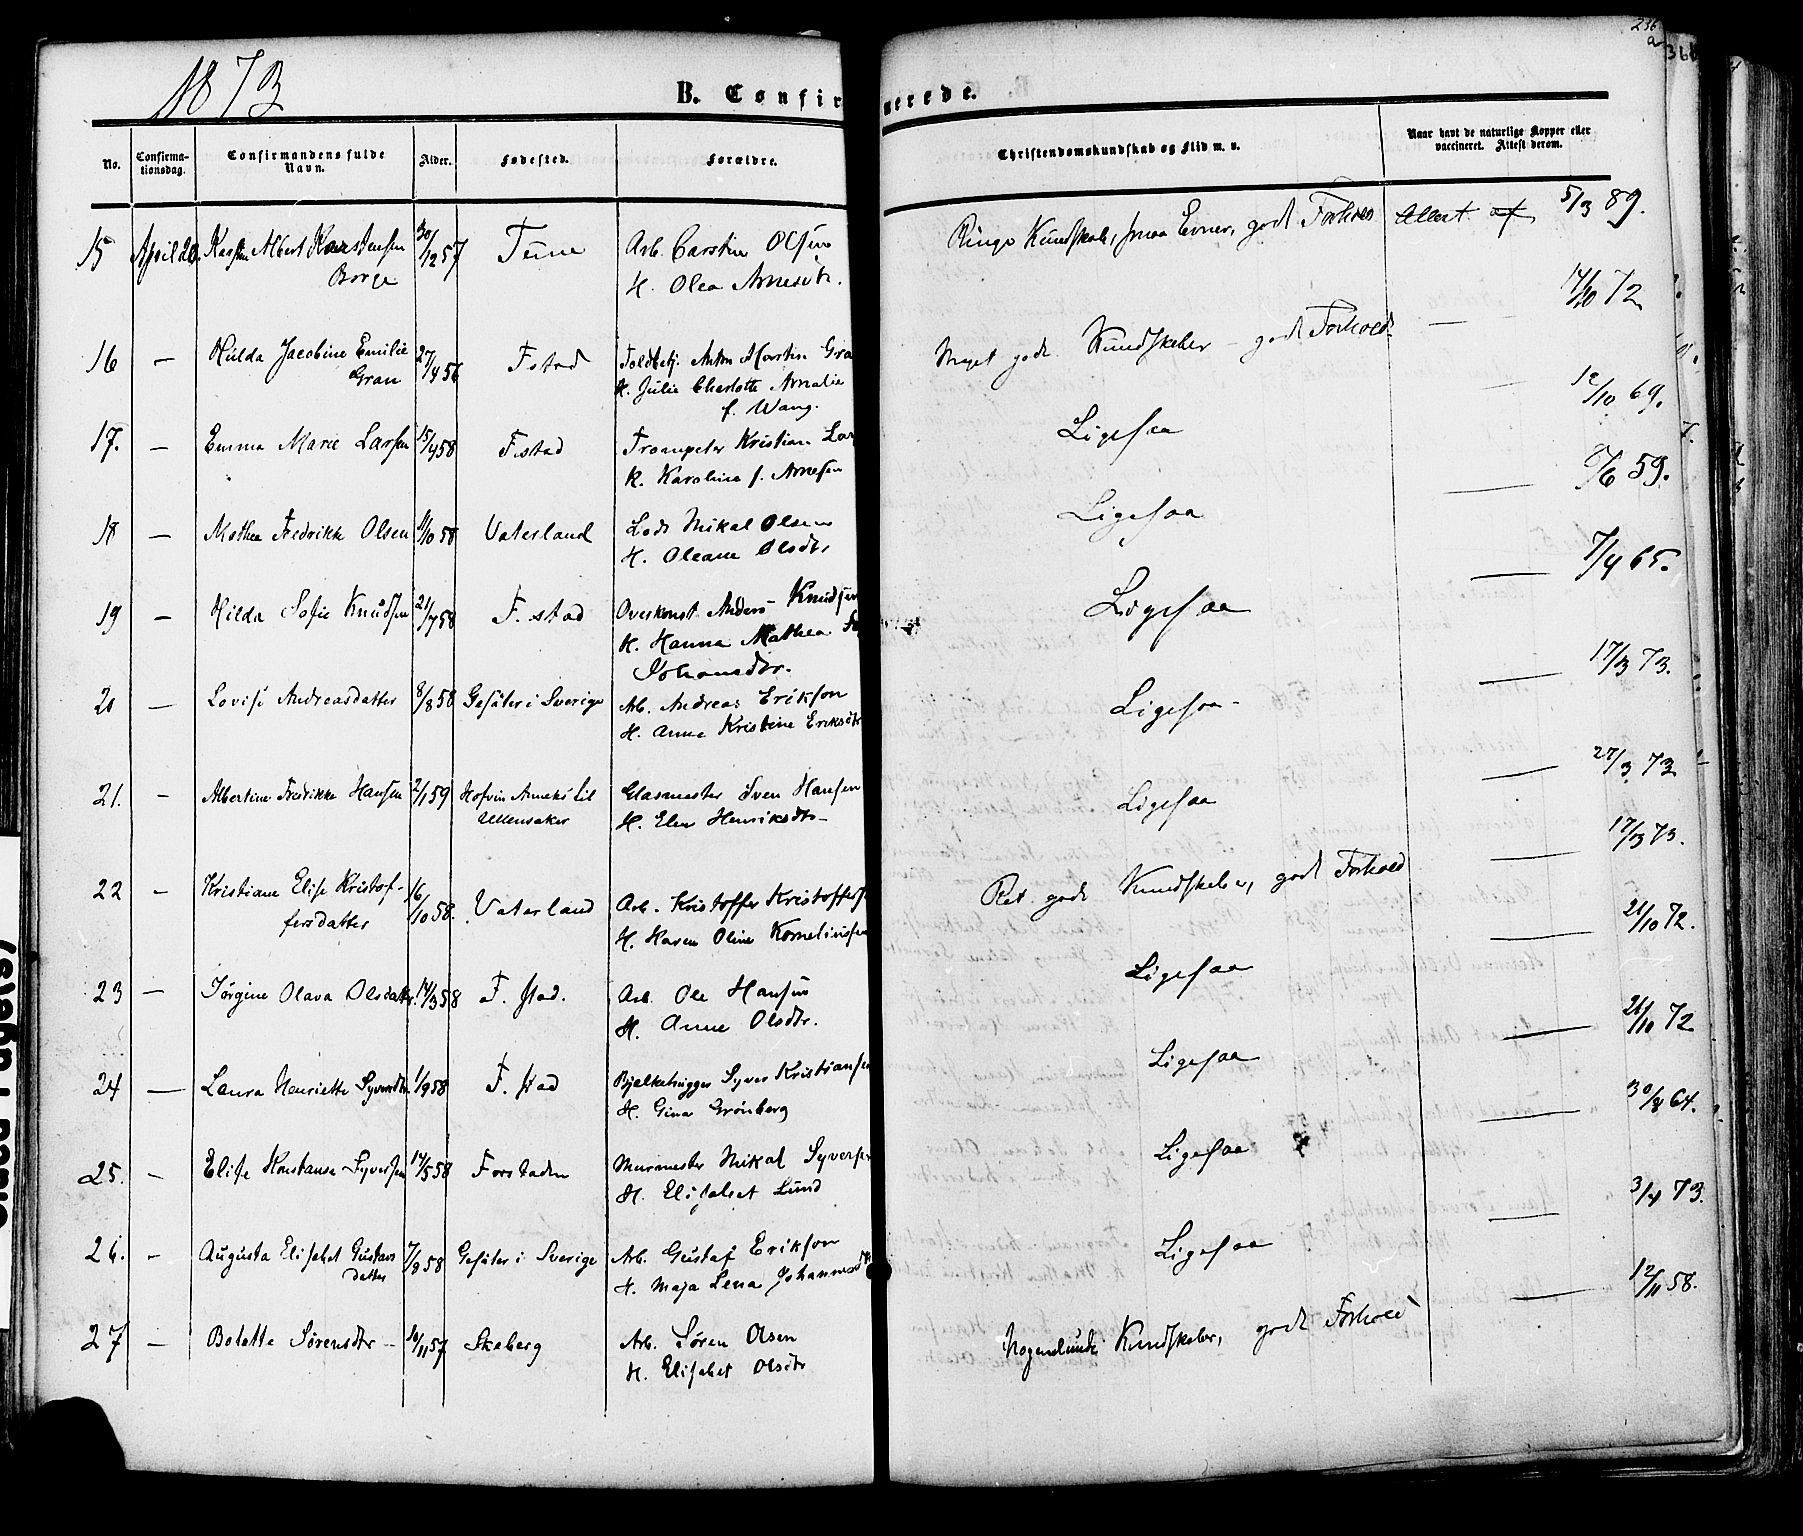 236
a
366
1873
B. Confir
merede.
No.
Confirma-
tionsdag.
Confirmandens fulde
Navn.
Alder.
Fødested.
Forældre.
Christendomskundskab og Flid m. v.
Naar havt de naturlige Kopper eller
vaccineret. Attest derom.
15 April 20. Karsten Albert Karstensen 30/12 57 Tune Arb. Carstin Olsen Ringe Kundskab, smaa Evner, godt Forhold Attest af 5/3 89.
Borge H. Olea Arnesdtr.
16 — Hilda Jacobine Emilie 27/4 56 Fstad Toldbetj. Anton Martin Gra Meget gode Kundskaber - godt Forhold — 17/10 72
Gran H. Julie Charlotte Amalie
f. Wang.
17. — Emma Marie Larsen 15/4 58 F.stad Trompeter Kristian Lar Ligesaa — 12/10 69.
K. Karoline f. Arnesen
18 — Mathea Fredrikke Olsen 11/10 58 Vaterland Lods Mikal Olsen Ligesaa — /6 59.
H. Oleane Olsdtr
19 — Hilda Sofie Knudsen 21/7 58 F. stad Overkonst. Anders Knudsen Ligesaa — 7/4 65.
H. Hanna Mathea
Johansdtr.
20 — Lovise Andreasdatter 8/8 58 Gesäter i Sverige Arb. Andreas Erikson Ligesaa - — 17/3 73.
H. Anna Kristine Eriksdtr
21. — Albertine Fredrikke Hansen 2/1 59 Hofvin Anneks til Glasmester Sven Hansen Ligesaa — 27/3 73
Ullensaker H. Elen Henriksdtr-
22 — Kristiane Elise Kristof- 16/10 58. Vaterland Arb. Kristoffer Kristoffers Ret gode Kundskaber, godt Forhold — 17/3 73.
fersdatter H. Karen Oline Korneliusen
23 — Jørgine Olava Olsdatter. 14/3 58 F. stad. Arb. Ole Hansen Ligesaa — 21/10 72.
H. Anne Olsdtr.
24 — Laura Henriette Syversdtr. 1/9 58 F. stad Bjelkehugger Syver Kristiansen Ligesaa — 21/10 72
H. Gina Grønberg
25. — Elise Konstanse Syversen 14/5 58 Forstaden Murmester Mikal Syversen Ligesaa — 30/8 64.
H. Elisabet Lund
26. — Augusta Elisabet Gustavs 7/8 58 Gesäter i Sverige Arb. Gustaf Erikson Ligesaa — 3/4 73.
datter H. Maja Lena Johannesdtr
27 — Bolette Sørensdtr - 10/11 57 Skeberg Arb. Søren Olsen Nogenlunde Kundskaber, godt Forhold — 12/11 58.
H. Elisabet Olsdtr